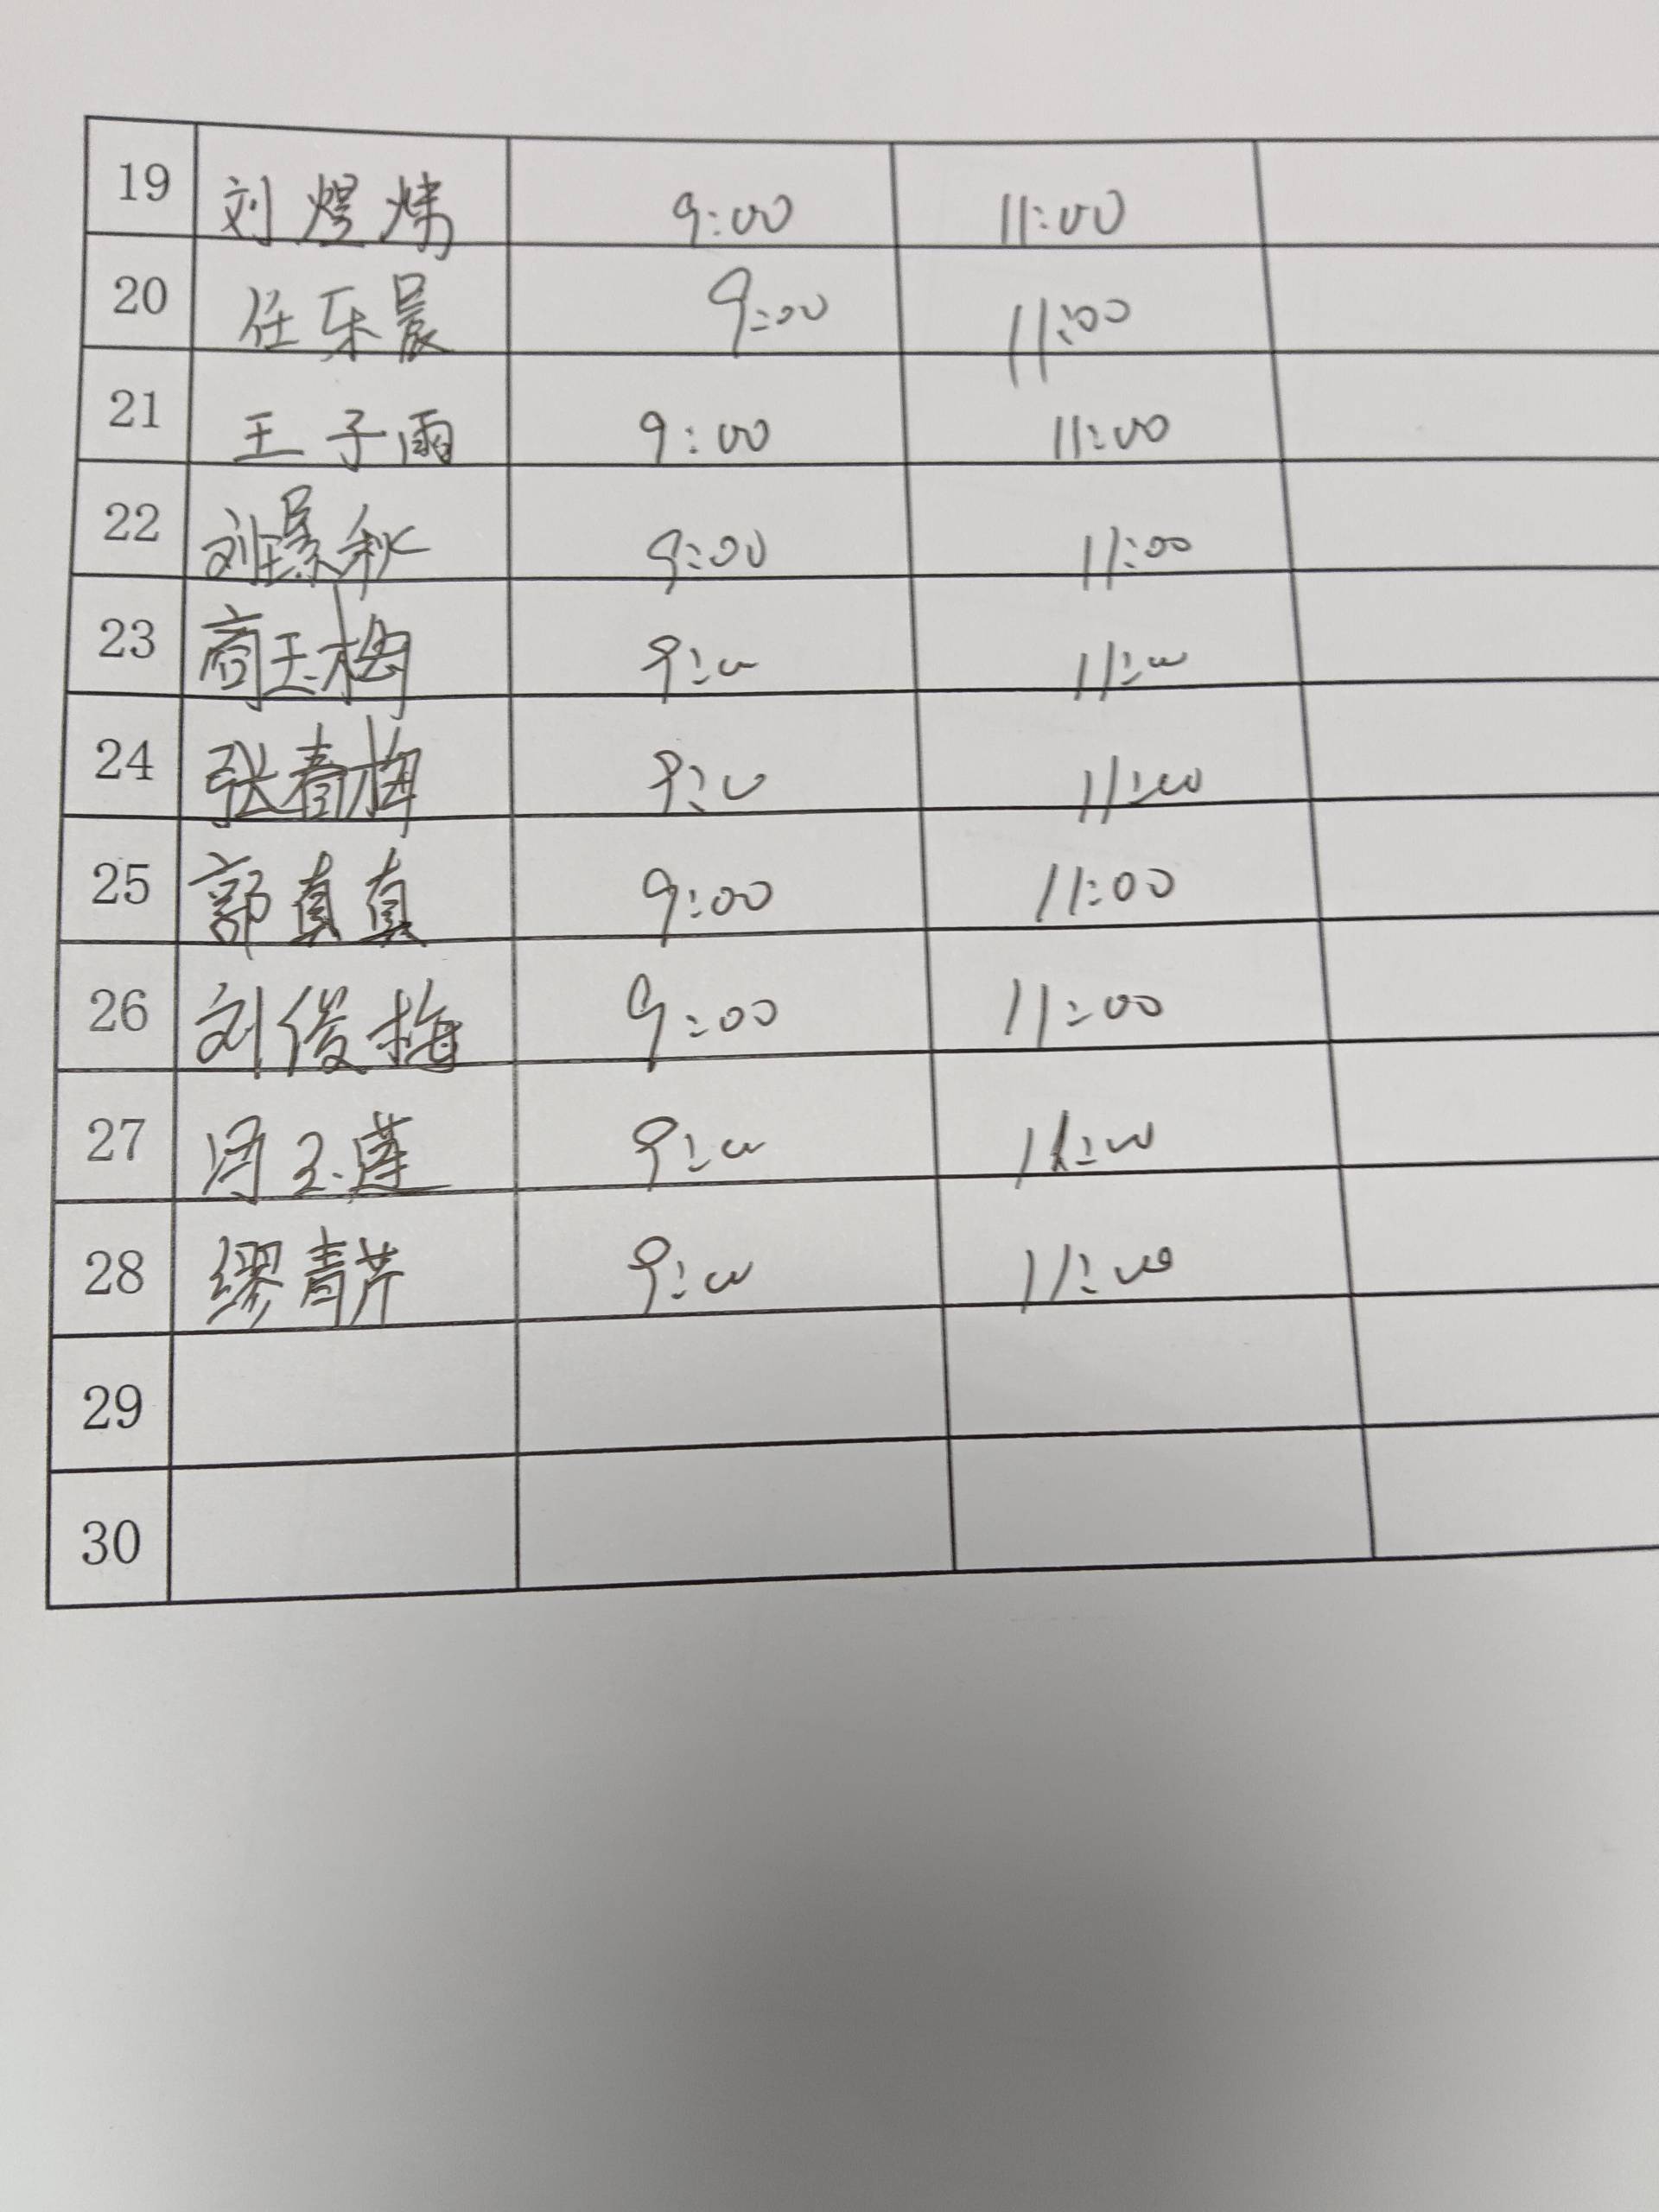 19 刘煜炜 9:00 11:00
20 任乐晨 9:00 11:00
21 王子雨 9:00 11:00
22 刘璟秋 9:00 11:00
23 商玉梅 9:00 11:00
24 张春梅 9:00 11:00
25 郭真真 9:00 11:00
26 刘俊梅 9:00 11:00
27 闫玉莲 9:00 11:00
28 缪青芹 9:00 11:00
29
30